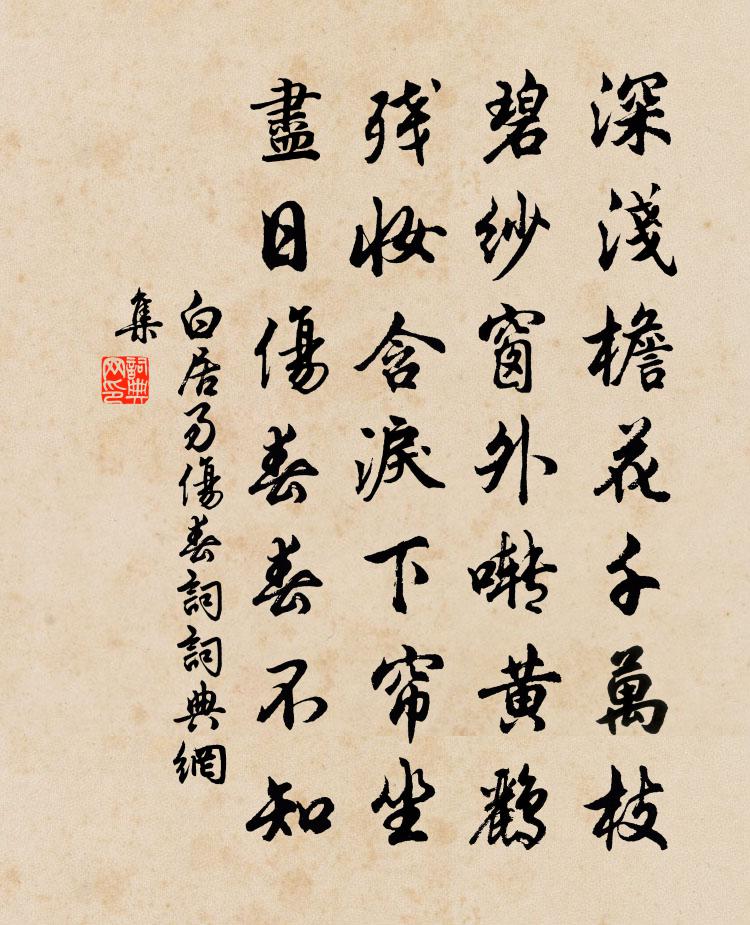 深淺檐花千萬枝
碧紗窗外啭黄鸝
残妝含淚下帘坐
盡日傷春春不知
白居易傷春詞詞典網
集
詞典
网印